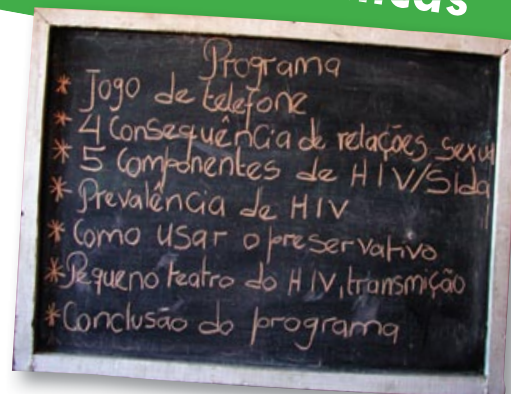 Programa
* Jogo de telefone
* 4 Consequência de relações sexu
* 5 Componentes de HIV/Sida
* Prevalência de HIV
* Como usar o preservativo
* Pequeno teatro do HIV, transmição
* Conclusão do programa